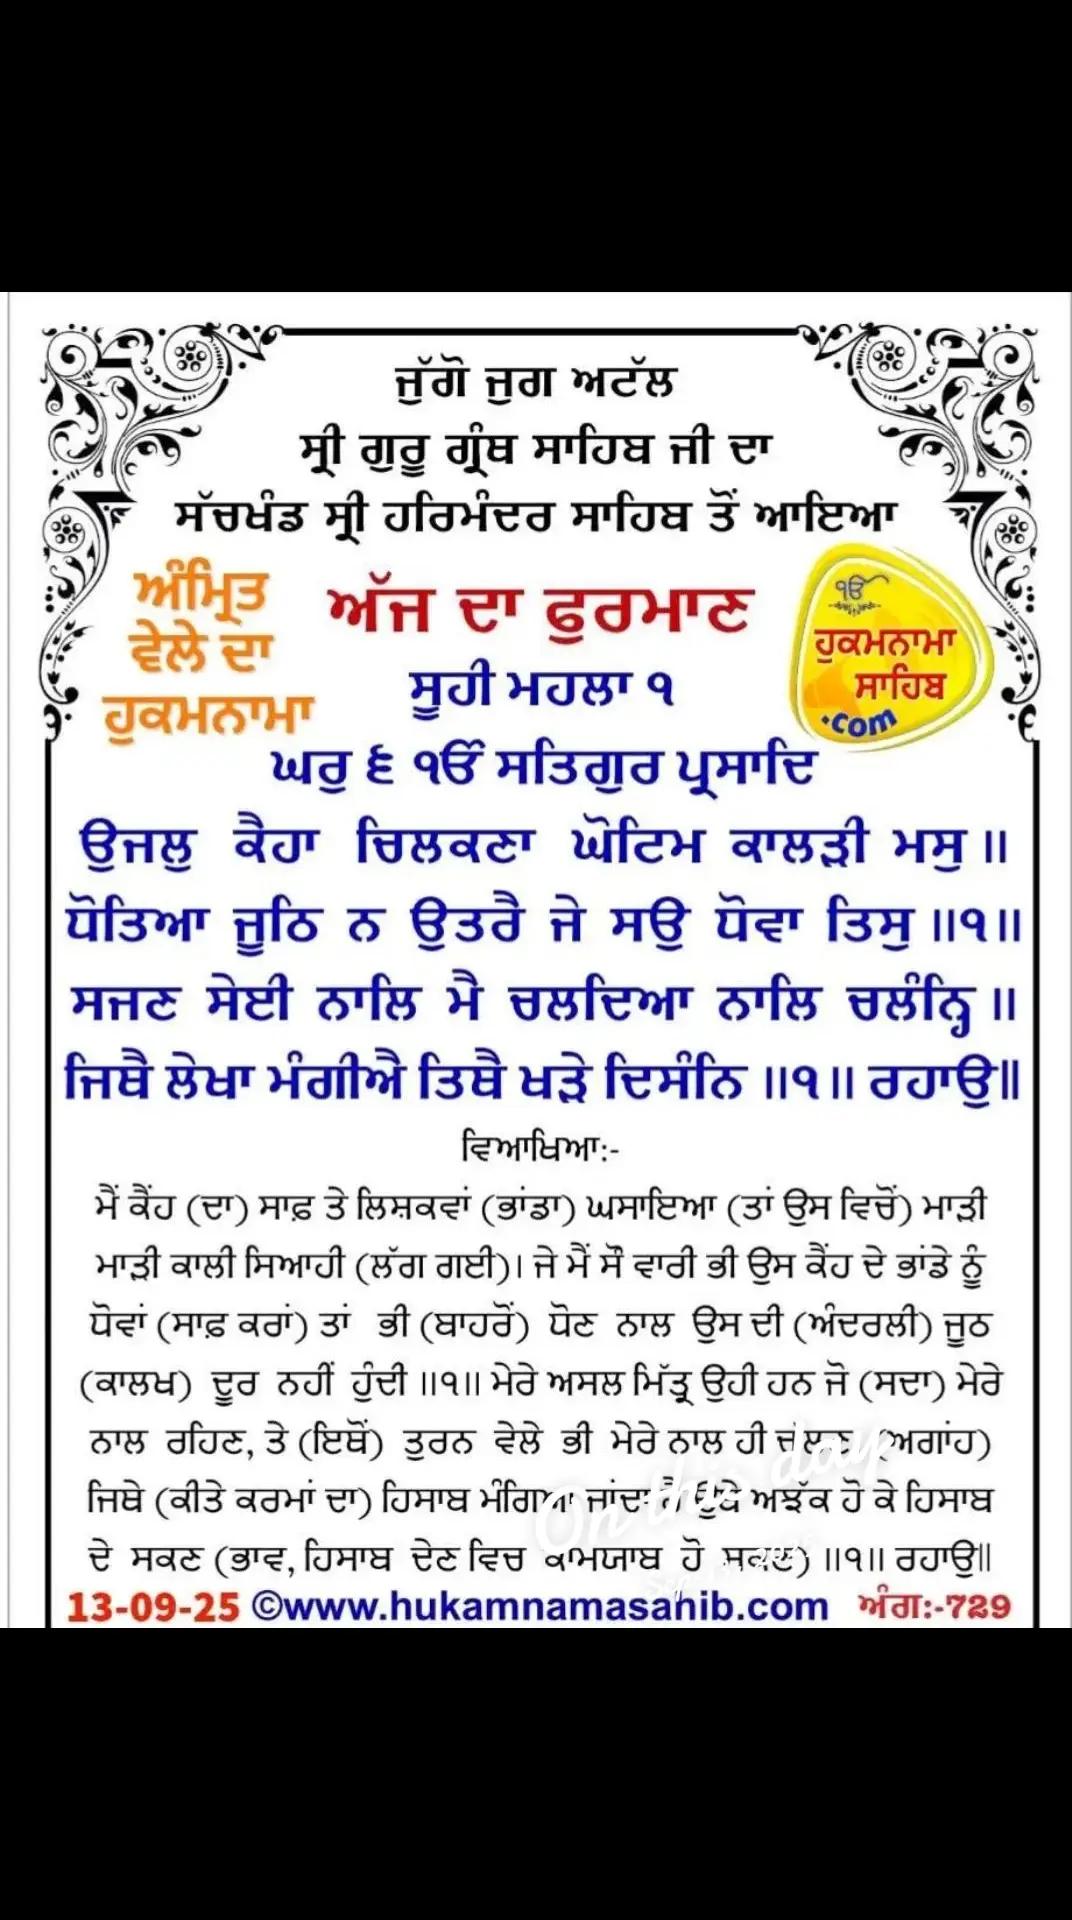 ਜੁੱਗੋ ਜੁਗ ਅਟੱਲ
ਸ੍ਰੀ ਗੁਰੂ ਗ੍ਰੰਥ ਸਾਹਿਬ ਜੀ ਦਾ
ਸੱਚਖੰਡ ਸ੍ਰੀ ਹਰਿਮੰਦਰ ਸਾਹਿਬ ਤੋਂ ਆਇਆ
ਅੰਮ੍ਰਿਤ
ਵੇਲੇ ਦਾ
ਹੁਕਮਨਾਮਾ
ਅੱਜ ਦਾ ਫੁਰਮਾਣ
ੴ
ਹੁਕਮਨਾਮਾ
ਸਾਹਿਬ
.com
ਸੂਹੀ ਮਹਲਾ ੧
ਘਰੁ ੬ ੴ ਸਤਿਗੁਰ ਪ੍ਰਸਾਦਿ
ਉਜਲੁ ਕੈਹਾ ਚਿਲਕਣਾ ਘੋਟਿਮ ਕਾਲੜੀ ਮਸੁ ॥
ਧੋਤਿਆ ਜੂਠਿ ਨ ਉਤਰੈ ਜੇ ਸਉ ਧੋਵਾ ਤਿਸੁ ॥੧॥
ਸਜਣ ਸੇਈ ਨਾਲਿ ਮੈ ਚਲਦਿਆ ਨਾਲਿ ਚਲੰਨ੍ਹਿ ॥
ਜਿਥੈ ਲੇਖਾ ਮੰਗੀਐ ਤਿਥੈ ਖੜੇ ਦਿਸੰਨਿ ॥੧॥ ਰਹਾਉ॥
ਵਿਆਖਿਆ:-
ਮੈਂ ਕੈਂਹ (ਦਾ) ਸਾਫ਼ ਤੇ ਲਿਸ਼ਕਵਾਂ (ਭਾਂਡਾ) ਘਸਾਇਆ (ਤਾਂ ਉਸ ਵਿਚੋਂ) ਮਾੜੀ
ਮਾੜੀ ਕਾਲੀ ਸਿਆਹੀ (ਲੱਗ ਗਈ)। ਜੇ ਮੈਂ ਸੌ ਵਾਰੀ ਭੀ ਉਸ ਕੈਂਹ ਦੇ ਭਾਂਡੇ ਨੂੰ
ਧੋਵਾਂ (ਸਾਫ਼ ਕਰਾਂ) ਤਾਂ ਭੀ (ਬਾਹਰੋਂ) ਧੋਣ ਨਾਲ ਉਸ ਦੀ (ਅੰਦਰਲੀ) ਜੂਠ
(ਕਾਲਖ) ਦੂਰ ਨਹੀਂ ਹੁੰਦੀ ॥੧॥ ਮੇਰੇ ਅਸਲ ਮਿੱਤ੍ਰ ਉਹੀ ਹਨ ਜੋ (ਸਦਾ) ਮੇਰੇ
ਨਾਲ ਰਹਿਣ, ਤੇ (ਇਥੋਂ) ਤੁਰਨ ਵੇਲੇ ਭੀ ਮੇਰੇ ਨਾਲ ਹੀ ਚੱਲਣ, (ਅਗਾਂਹ)
ਜਿਥੇ (ਕੀਤੇ ਕਰਮਾਂ ਦਾ) ਹਿਸਾਬ ਮੰਗਿਆ ਜਾਂਦਾ ਹੈ ਉਥੇ ਅਝੱਕ ਹੋ ਕੇ ਹਿਸਾਬ
ਦੇ ਸਕਣ (ਭਾਵ, ਹਿਸਾਬ ਦੇਣ ਵਿਚ ਕਾਮਯਾਬ ਹੋ ਸਕਣ) ॥੧॥ ਰਹਾਉ॥
On this day
13-09-25 ©www.hukamnamasahib.com ਅੰਗ:-729